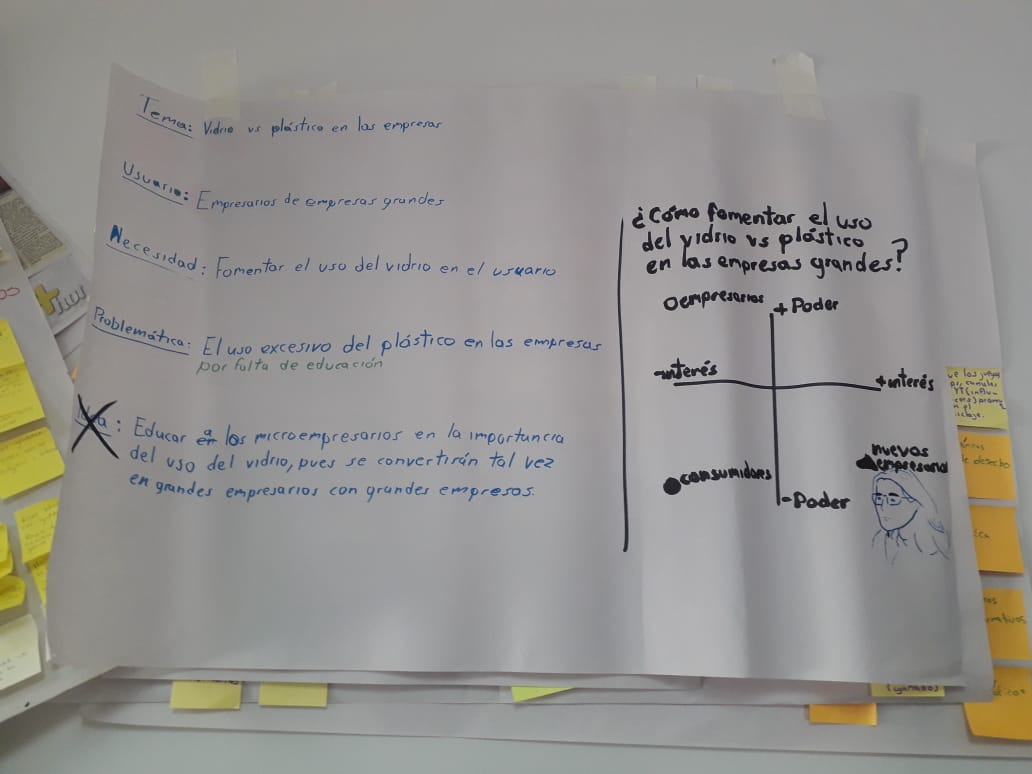 Tema: Vidrio vs plástico en las empresas
Usuario: Empresarios de empresas grandes
Necesidad: Fomentar el uso del vidrio en el usuario
Problemática: El uso excesivo del plástico en las empresas
por falta de educación
: Educar a los microempresarios en la importancia
del uso del vidrio, pues se convertirán tal vez
en grandes empresarios con grandes empresas.
¿Cómo fomentar el uso
del vidrio vs plástico
en las empresas grandes?
empresarios
+ Poder
-interés
+ interés
consumidores
- Poder
nuevos
empresario
de desecho